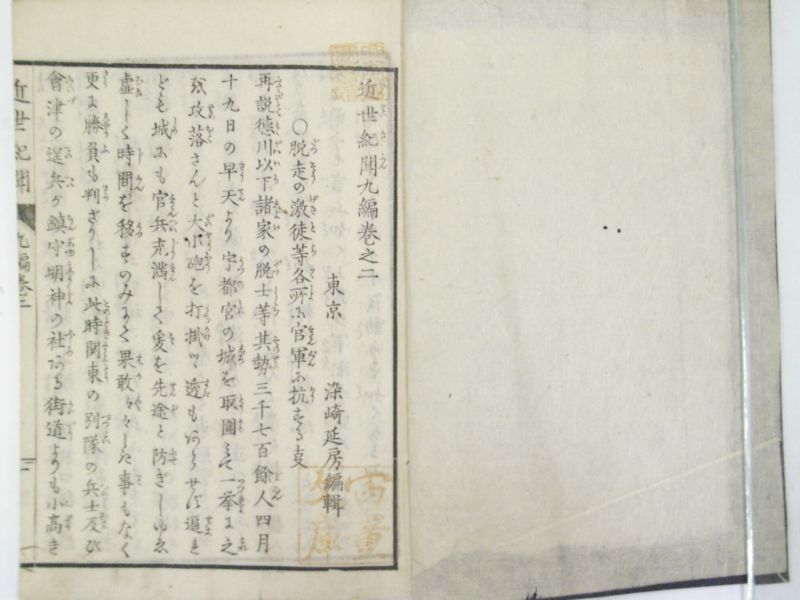 近世紀聞九編巻之二
東京 染崎延房編輯
○脱走の激徒等各所に官軍に抗する事
再説徳川以下諸家の脱士等其勢三千七百餘人四月
十九日の早天より宇都宮の城を取圍みて一挙に之
を攻落さんと大小砲を打掛け透もあらせず逼れ
ども城にも官兵充満して爰を先途と防ぎしゆゑ
虚しく時間を移すのみにて果敢々々しき事もなく
更に勝負も判ざりしに此時関東の別隊の兵士及び
會津の逞兵が鎮守明神の社ある街道よりも小高き
近世紀聞 九編巻二